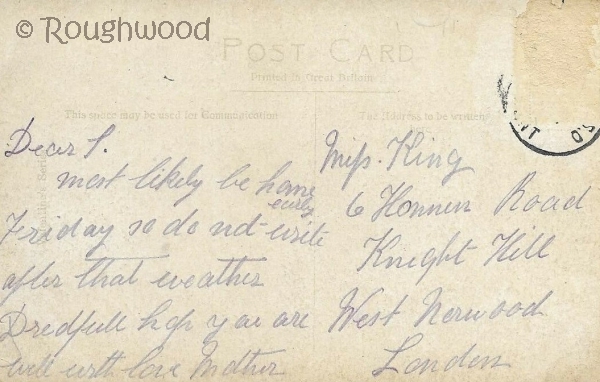 © Roughwood
POST CARD
Printed in Great Britain
This space may be used for Communication
The Address to be written
Dear P.
most likely be home
early
Friday so do not write
after that weather
Dredfull hop you are
well with love Mother
Miss. King
6 Road
Knight Hill
West Norwood
London